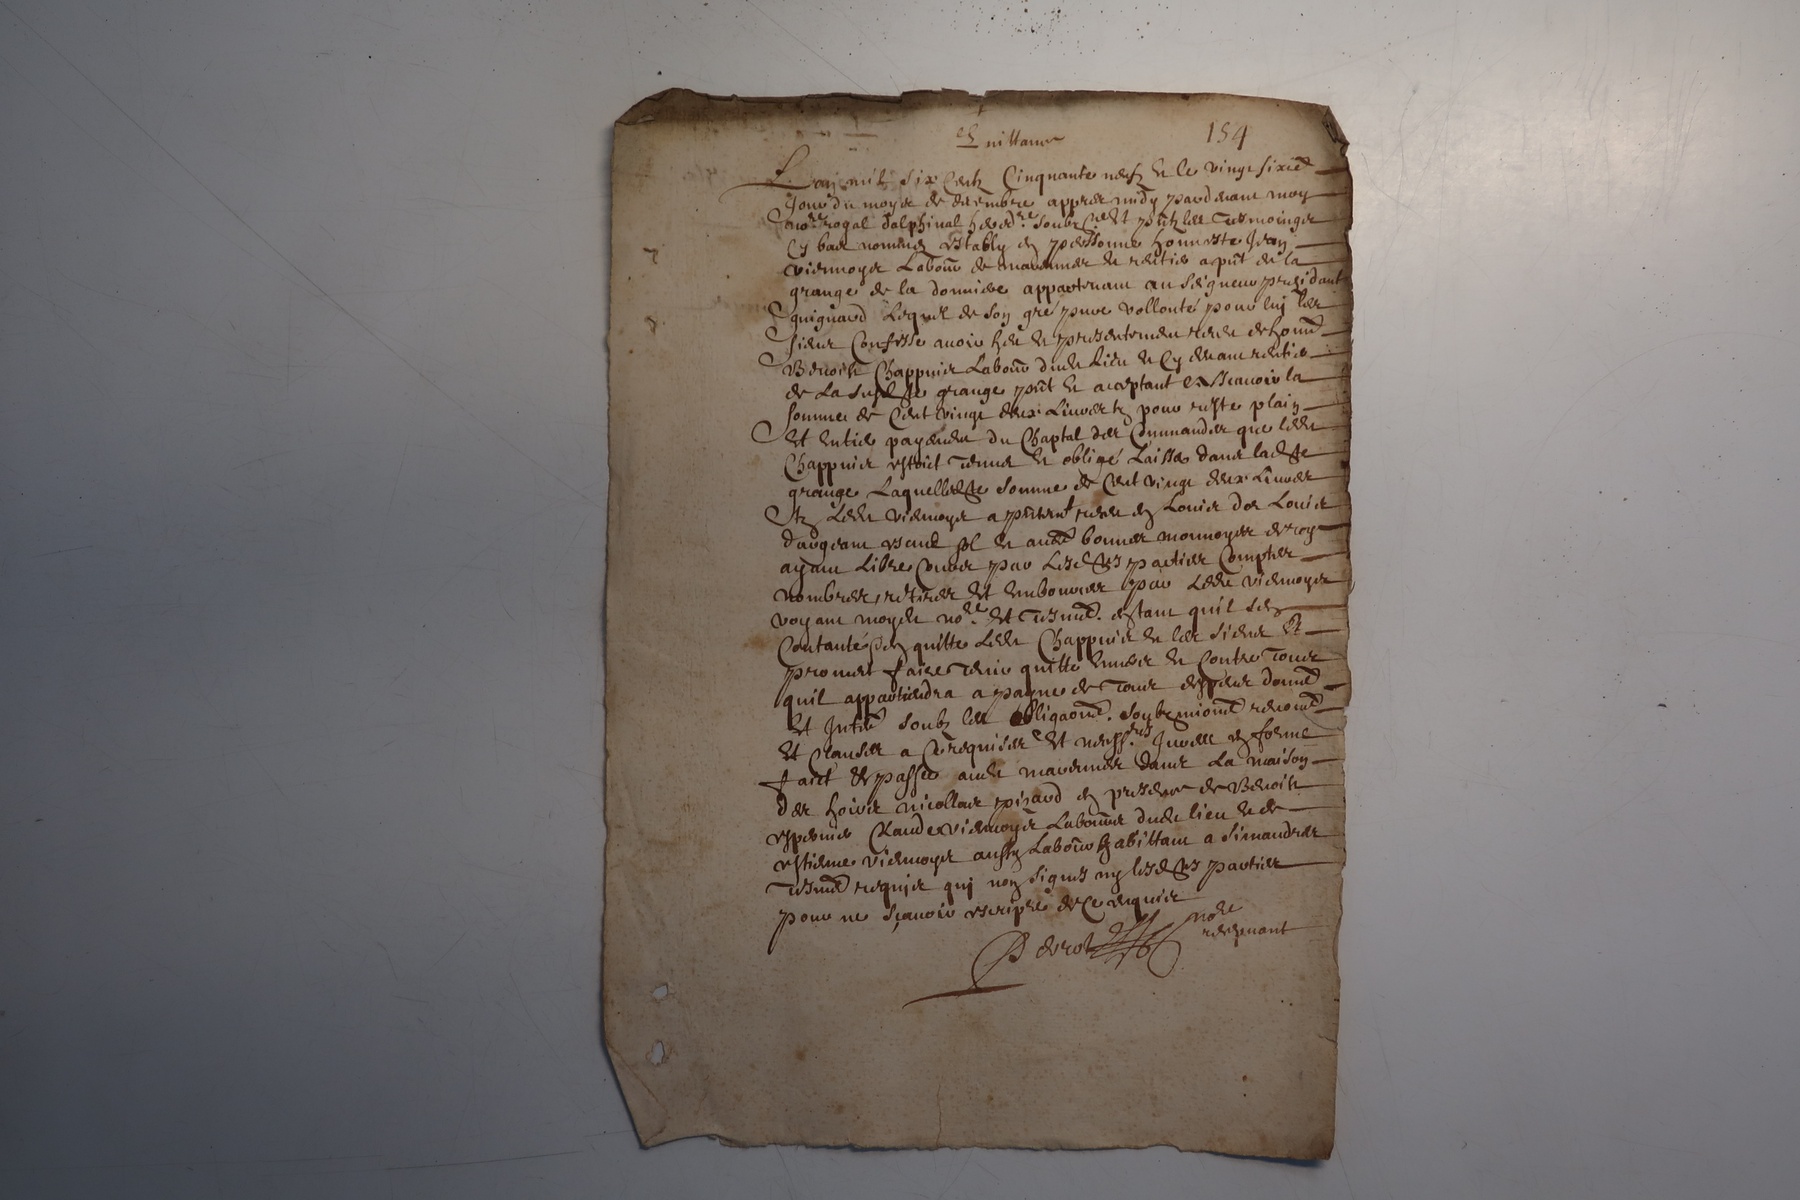 Quittance 154
L'an mil six centz cinquante neuf et le vingt sixie
jour du moys de decembre appres midy pardevant moy
no.re royal dalphinal hered.re soubz.ne et pntz les tesmoings
cy bas nommez estably en personne honneste Jean
viermoyr Labour de marennes et rentier a pnt de la
grange de la donniere appartenant au seigneur presidant
guignard Lequel de son gré pure vollonté pour luy les
siens Confesse avoir heu et presentement receu de honn
Benoist Chappuis Labour dudt lieu et cy devant rentier
de La susdte grange pnt et acceptant Assavoir la
somme de Cent vingt deux Livres tz pour reste plain
et entier payement du Chaptal des Commandes que ledt
Chappuis estoit tenu et obligé Laisser dans ladte
grange Laquelledte somme de Cent vingt deux Livres
tz Ledt viermoyr a presentmt receu en Louis dor Louis
d'argeant escus sol et autre bonnes monnoyes de roy
ayant Libre Cours par Lesdtes parties Comptes
nombres, retires et emboursés par Ledt viermoyr
voyant moydt no.re et tesmt. estant quil sen
Contante Et quitte Ledt Chappuis et les siens Et
promet faire tenir quitte envers et Contre tous
quil appartiendra a payne de tous despens domm
et Intre soubz les obligaont. soubzmiont renont
et Clauses a Ce requises Et necess.res Jurees en forme
faict et passé audt marennes dans La maison
des hoirs nicollas pirard en presence de Benoist
Claude viermoyr Laboure dudt lieu et de
estienne viermoyr aussy Labour habittant a simandres
tesmt requis qui n'on signes ny lesdtes parties
pour ne sçavoir escripre de Ce enquis
Derot no.re
recepvant